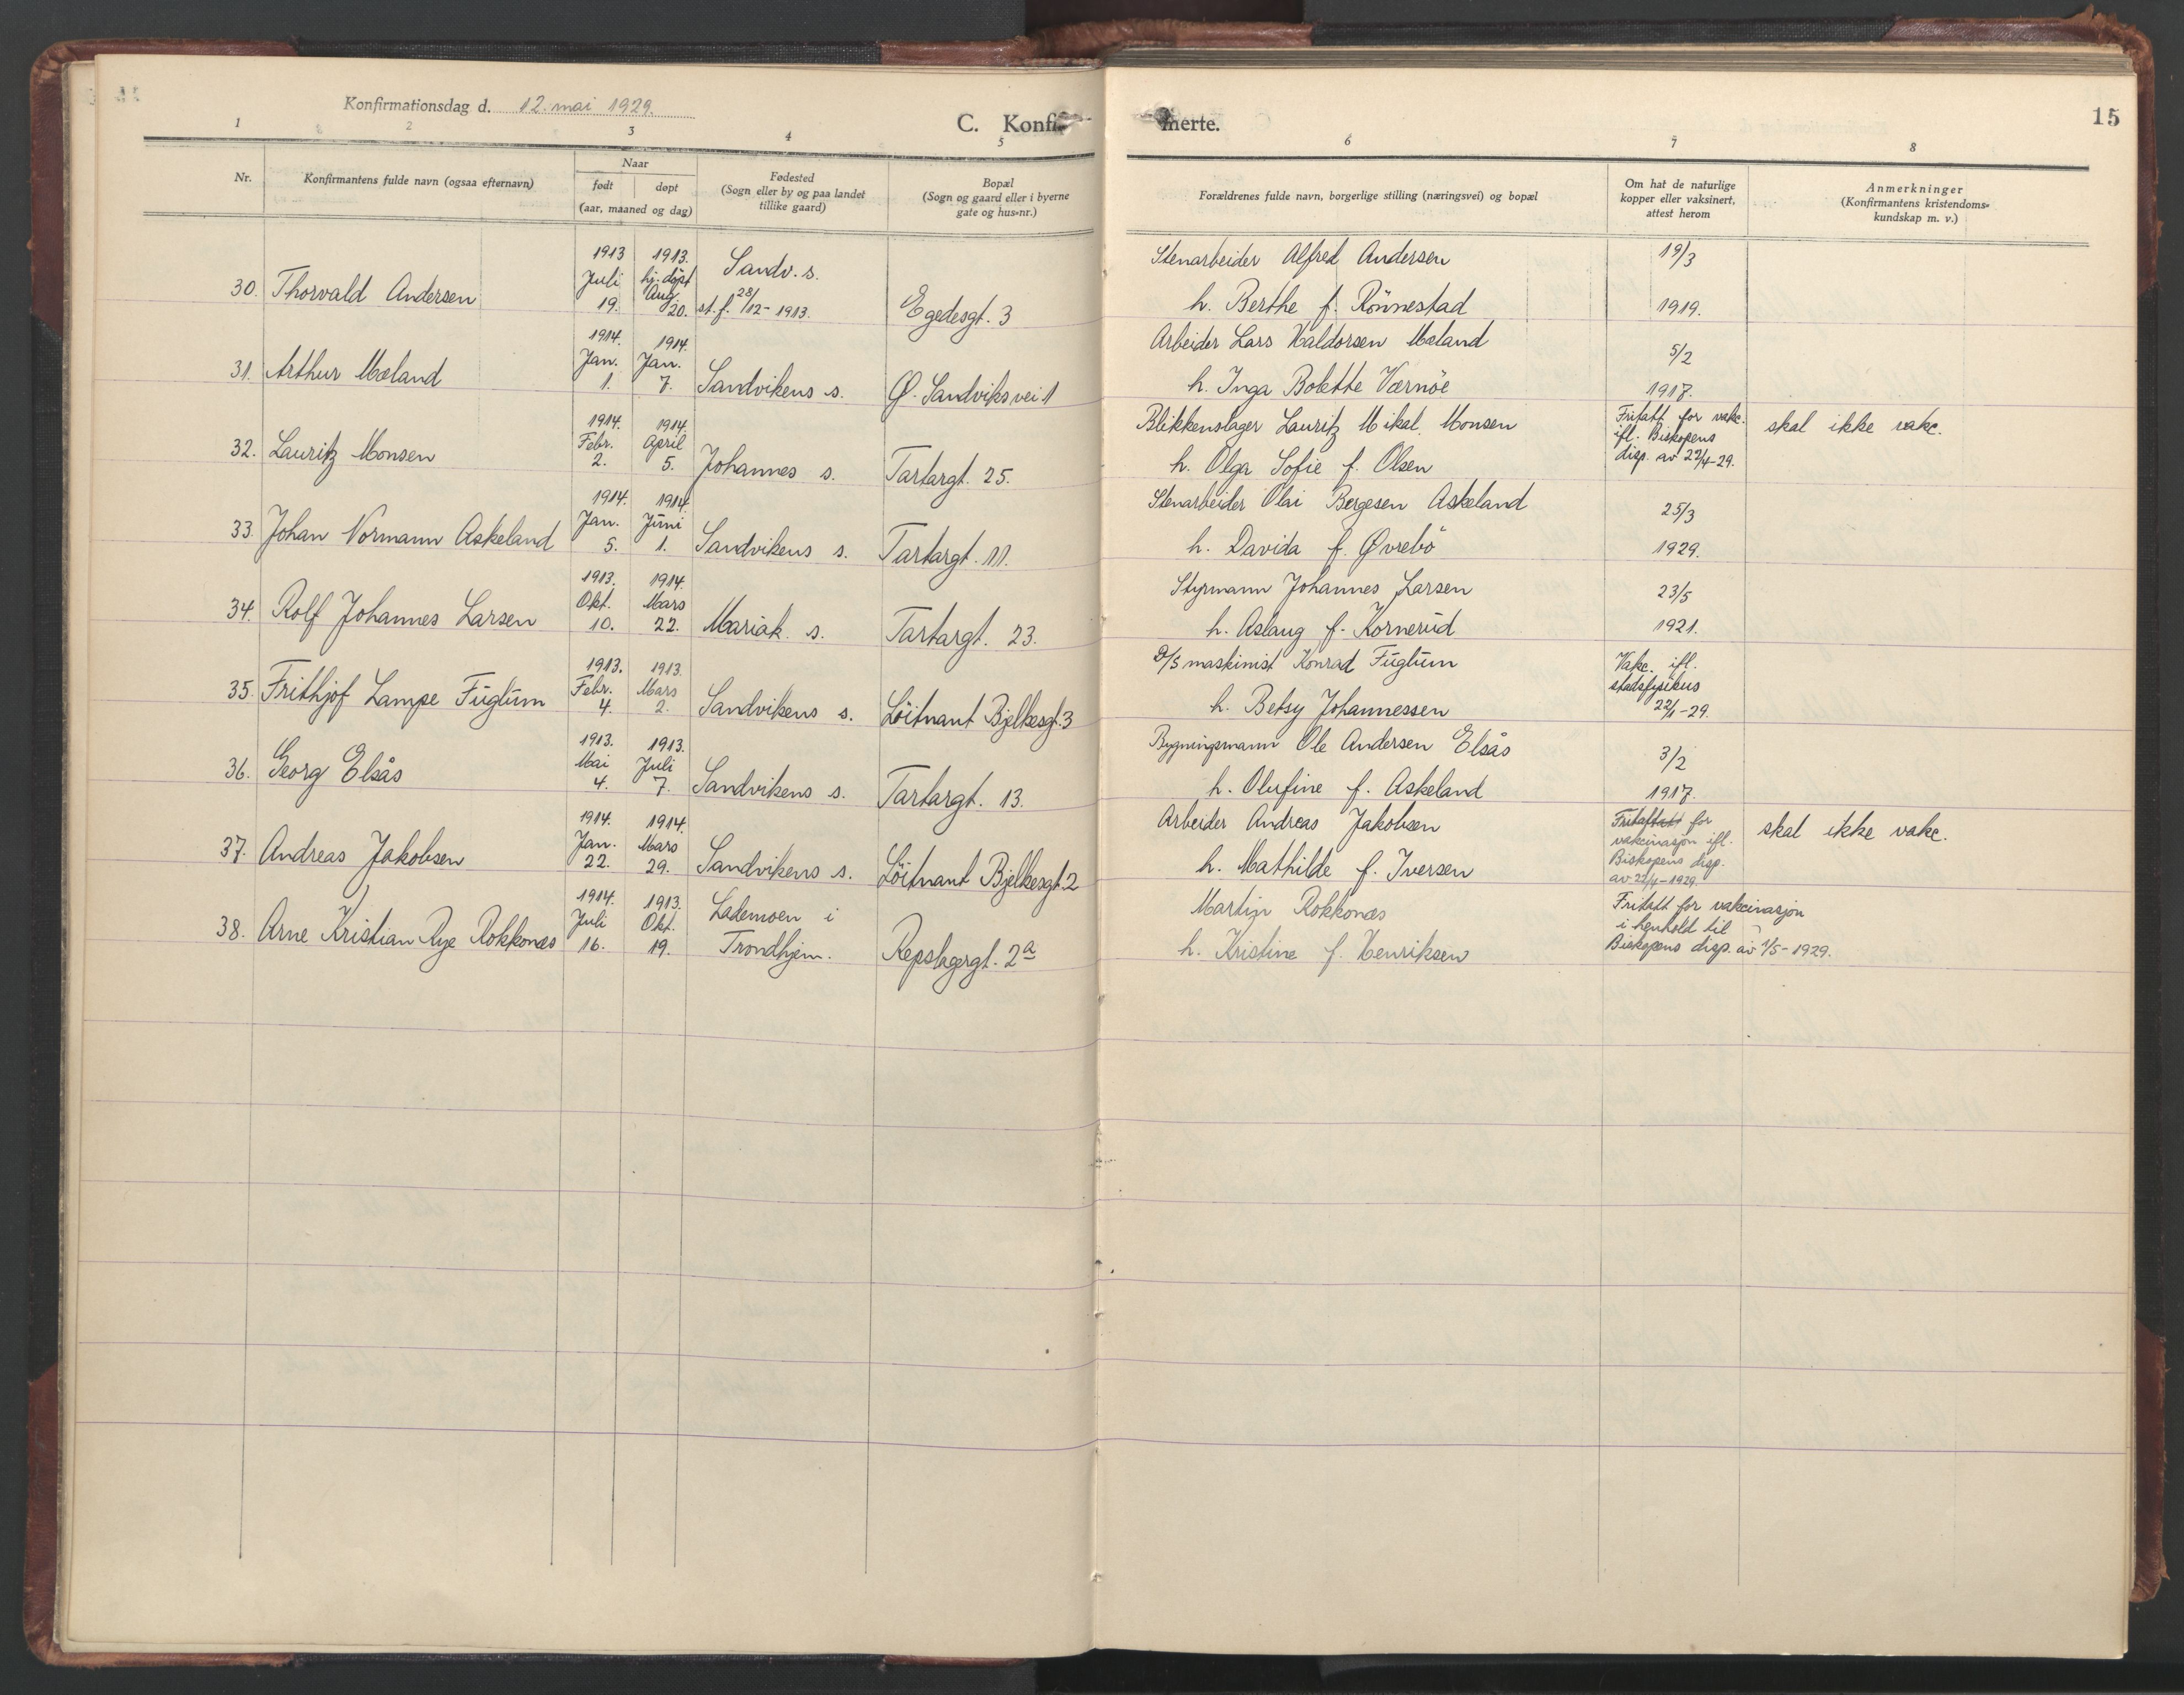 Konfirmationsdag d. 12. mai 1929.
C. Konfi
merte.
15
1 2 3 4 5 6 7 8
Nr.
Konfirmantens fulde navn (ogsaa efternavn)
Naar
født døpt
(aar, maaned og dag)
Fødested
(Sogn eller by og paa landet
tillike gaard)
Bopæl
(Sogn og gaard eller i byerne
gate og hus-nr.)
Forældrenes fulde navn, borgerlige stilling (næringsvei) og bopæl
Om hat de naturlige
kopper eller vaksinert,
attest herom
Anmerkninger
(Konfirmantens kristendoms-
kundskap m. v.)
30. Thorvald Andersen
1913 Juli 19.
1913. hj. døpt Aug 20.
Sandv. s.
st. f. 28/12 - 1913.
Egedesgt. 3
Stenarbeider Alfred Andersen
h. Berthe f. Rönnestad
19/3
1919.
31. Arthur Mæland
1914. Jan. 1.
1914. Jan. 7.
Sandvikens s.
Ø. Sandviksvei 1
Arbeider Lars Haldorsen Mæland
h. Inga Bolette Værnöe
5/2
1917.
32. Lauritz Monsen
1914. Febr. 2.
1914. April 5.
Johannes s.
Tartargt. 25.
Blikkenslager Lauritz Mikal Monsen
h. Olga Sofie f. Olsen
Fritatt for vakc.
ifl. Biskopens
disp. av 22/4-29.
skal ikke vakc.
33. Johan Normann Askeland
1914. Jan. 5.
1914. Juni 1.
Sandvikens s.
Tartargt. 11.
Stenarbeider Olai Bergesen Askeland
h. Davida f. Øvrebö
25/3
1929.
34. Rolf Johannes Larsen
1913. Okt. 10.
1914. Mars 22.
Mariak. s.
Tartargt. 23.
Styrmann Johannes Larsen
h. Aslaug f. Kornerud
23/5
1921.
35. Frithjof Lampe Fuglum
1913. Febr. 4.
1913. Mars 2.
Sandvikens s.
Löitnant Bjelkesgt. 3
D/S maskinist Konrad Fuglum
h. Betsy Johannessen
Vakc. ifl.
stadsfysikus
22/1-29.
36. Georg Elsås
1913. Mai 4.
1913. Juli 7.
Sandvikens s.
Tartargt. 13.
Bygningsmann Ole Andersen Elsås
h. Olufine f. Askeland
3/2
1917.
37. Andreas Jakobsen
1914. Jan. 22.
1914. Mars 29.
Sandvikens s.
Löitnant Bjelkesgt. 2
Arbeider Andreas Jakobsen
h. Mathilde f. Iversen
for
vakcinasjon ifl.
Biskopens disp.
av 22/4-1929.
skal ikke vakc.
38. Arne Kristian Rye Rokkonæs
1914. Juli 16.
1913. Okt. 19.
Lademoen i
Trondhjem.
Repslagergt. 2a
Martin Rokkonæs
h. Kristine f. Henriksen
Fritatt for vakcinasjon
i henhold til
Biskopens disp. av 1/5-1929.